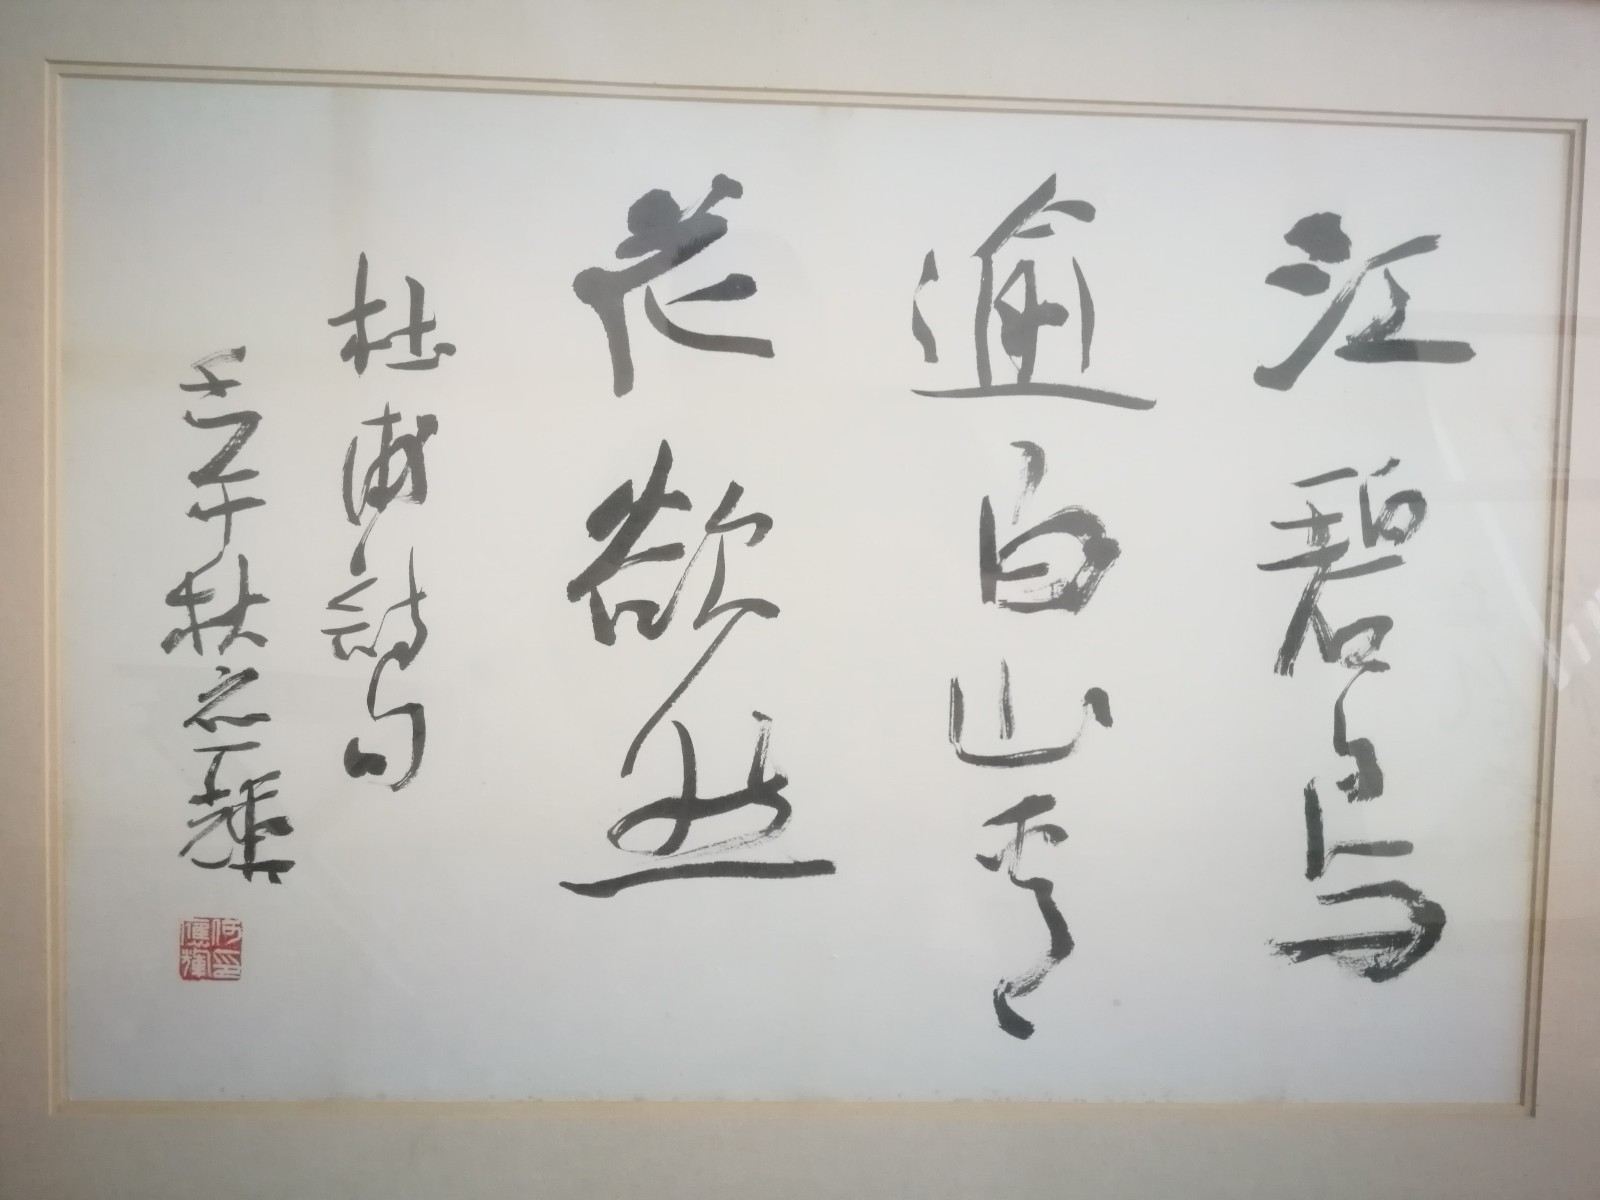 江碧鳥
逾白山青
花欲然
杜甫詩句
壬午秋应輝
何印
應輝